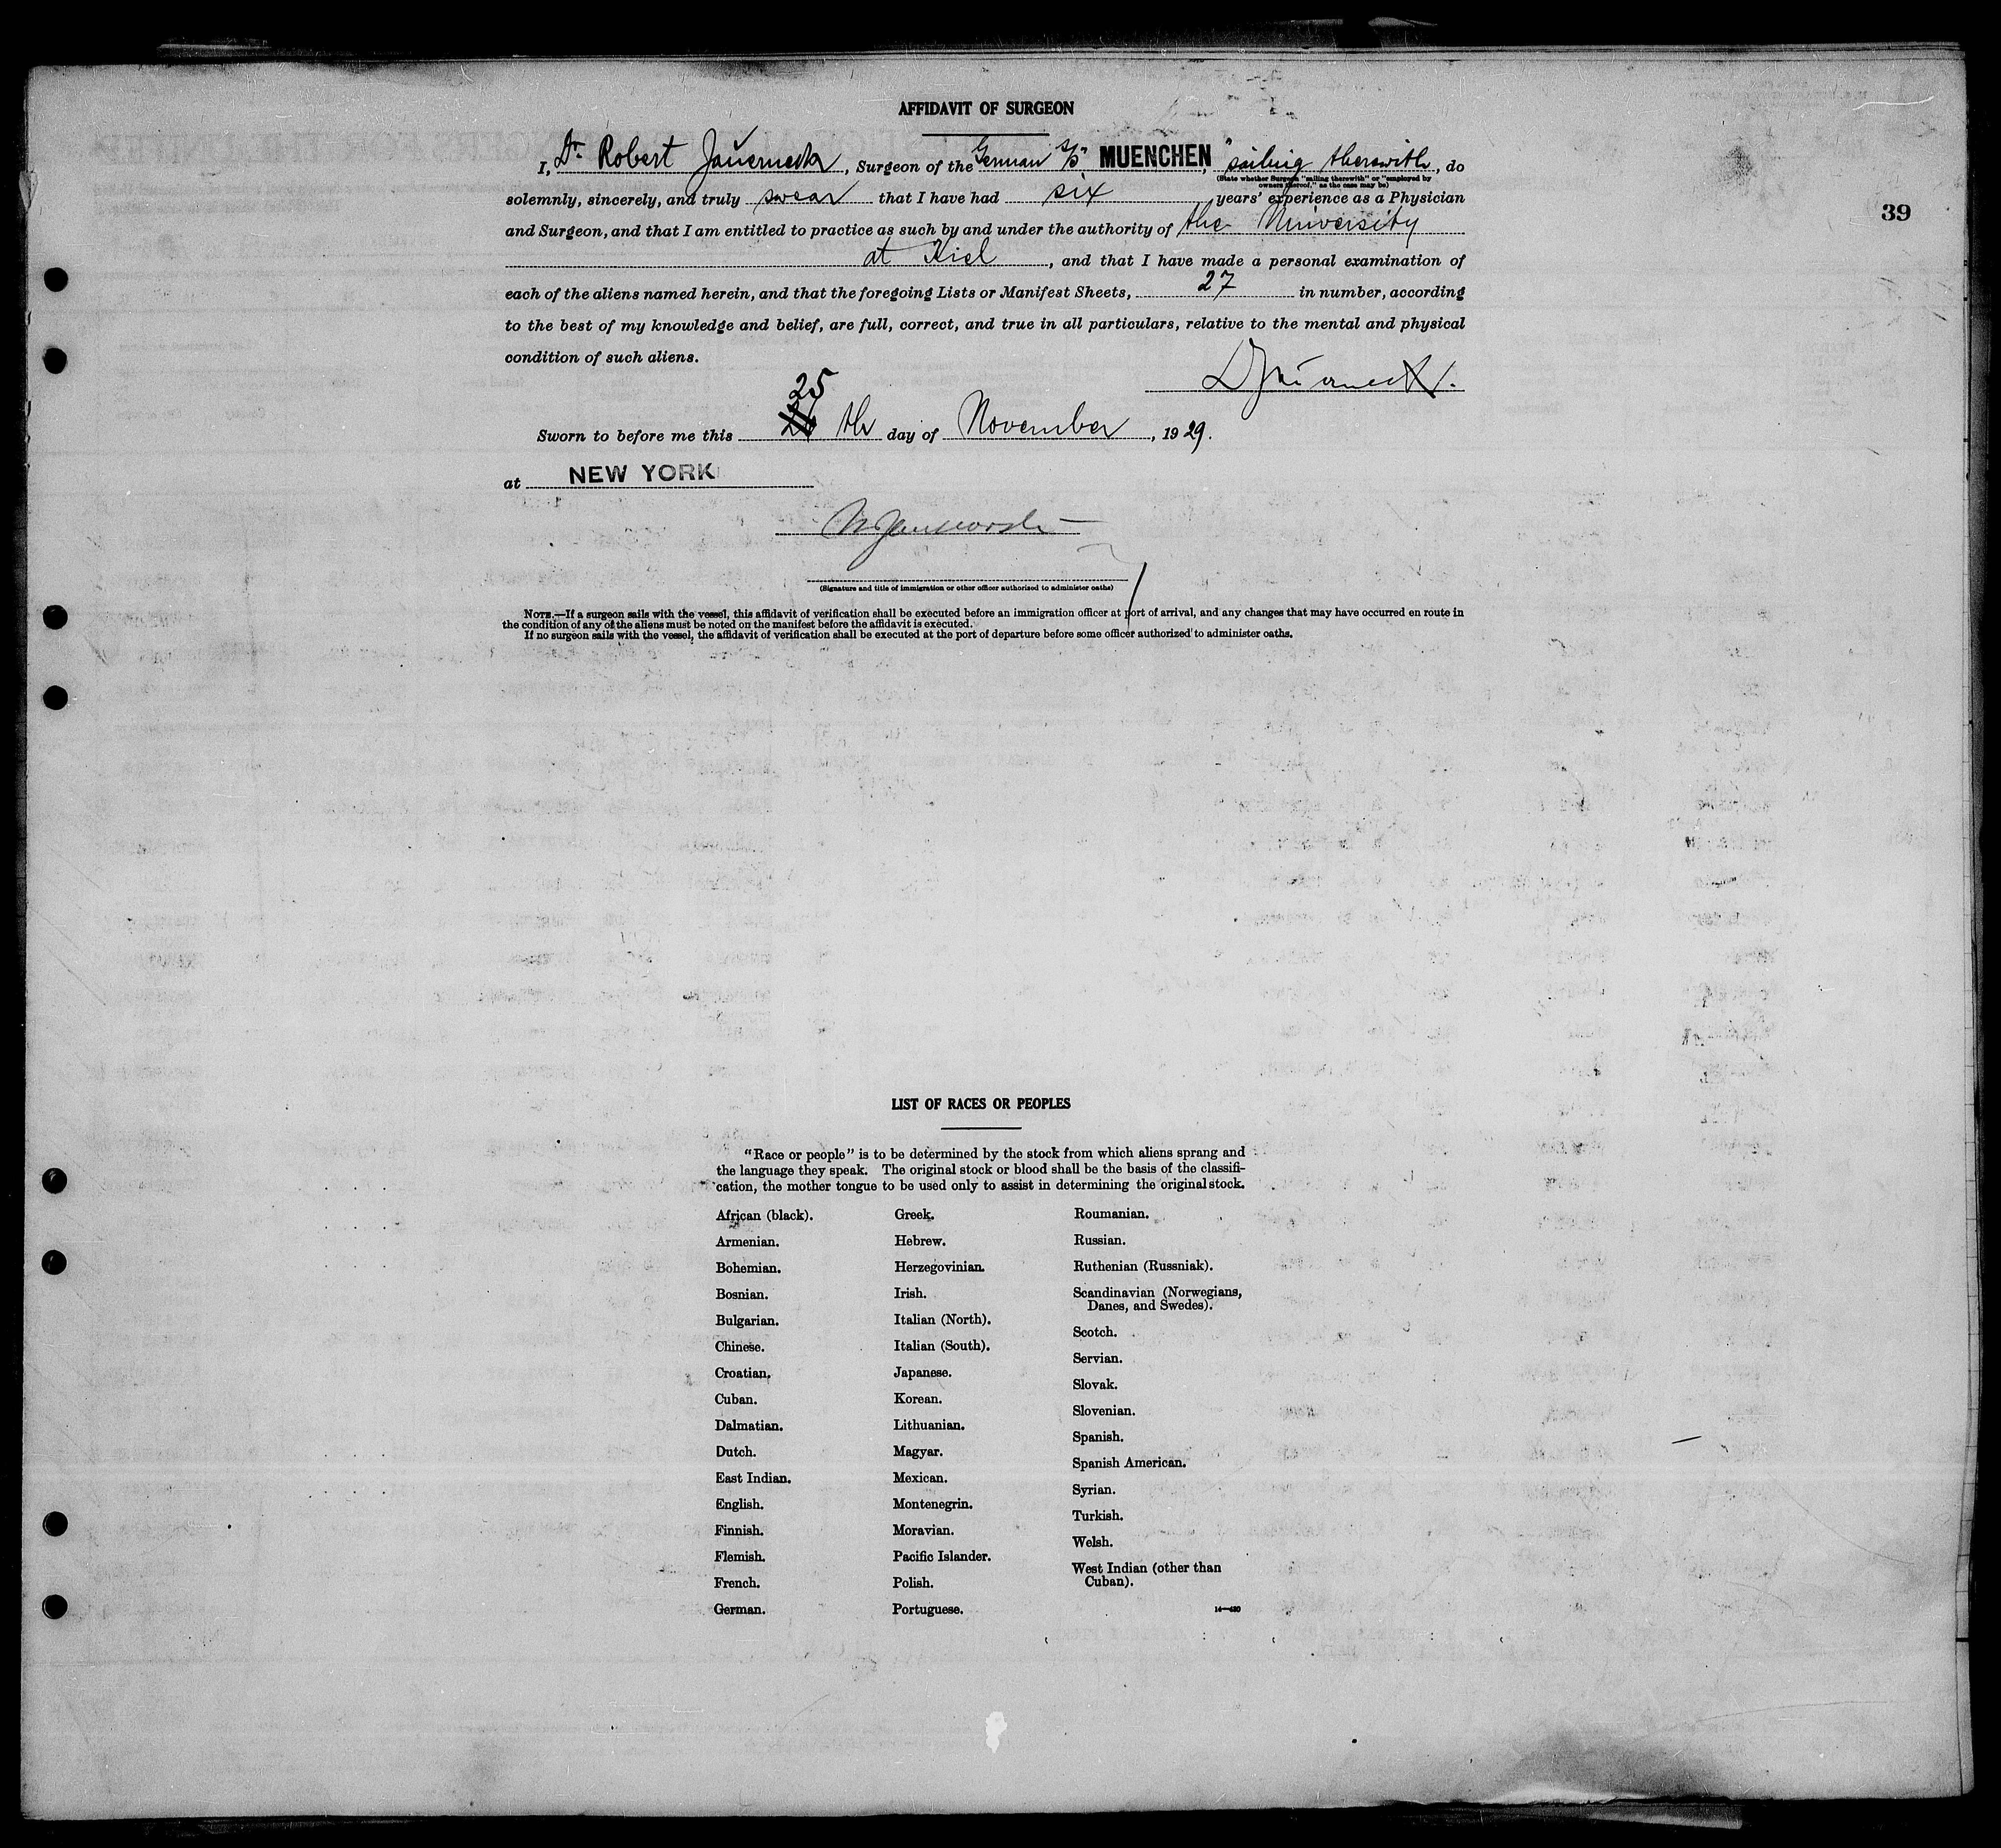 AFFIDAVIT OF SURGEON
39
I, Dr Robert Jauerneck, Surgeon of the German S/S "MUENCHEN, "sailing therewith, do
(State whether Surgeon "sailing therewith" or "employed by
owners thereof," as the case may be)
solemnly, sincerely, and truly swear that I have had six years' experience as a Physician
and Surgeon, and that I am entitled to practice as such by and under the authority of the University
at Kiel, and that I have made a personal examination of
each of the aliens named herein, and that the foregoing Lists or Manifest Sheets, 27 in number, according
to the best of my knowledge and belief, are full, correct, and true in all particulars, relative to the mental and physical
condition of such aliens.
25
Sworn to before me this th day of November, 1929.
at NEW YORK
(Signature and title of immigration or other officer authorized to administer oaths)
NOTE.—If a surgeon sails with the vessel, this affidavit of verification shall be executed before an immigration officer at port of arrival, and any changes that may have occurred en route in
the condition of any of the aliens must be noted on the manifest before the affidavit is executed.
If no surgeon sails with the vessel, the affidavit of verification shall be executed at the port of departure before some officer authorized to administer oaths.
LIST OF RACES OR PEOPLES
"Race or people" is to be determined by the stock from which aliens sprang and
the language they speak. The original stock or blood shall be the basis of the classifi-
cation, the mother tongue to be used only to assist in determining the original stock.
African (black).
Armenian.
Bohemian.
Bosnian.
Bulgarian.
Chinese.
Croatian.
Cuban.
Dalmatian.
Dutch.
East Indian.
English.
Finnish.
Flemish.
French.
German.
Greek.
Hebrew.
Herzegovinian.
Irish.
Italian (North).
Italian (South).
Japanese.
Korean.
Lithuanian.
Magyar.
Mexican.
Montenegrin.
Moravian.
Pacific Islander.
Polish.
Portuguese.
Roumanian.
Russian.
Ruthenian (Russniak).
Scandinavian (Norwegians,
Danes, and Swedes).
Scotch.
Servian.
Slovak.
Slovenian.
Spanish.
Spanish American.
Syrian.
Turkish.
Welsh.
West Indian (other than
Cuban).
14—430